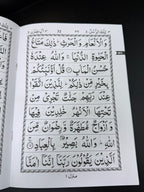 وَالْاَنْعَامِ وَالْحَرْثِ ؕ ذٰلِكَ مَتَاعُ
الْحَيٰوةِ الدُّنْيَا ۚ وَاللّٰهُ عِنْدَهٗ
حُسْنُ الْمَاٰبِ ۝ قُلْ اَؤُنَبِّئُكُمْ
بِخَيْرٍ مِّنْ ذٰلِكُمْ ؕ لِلَّذِيْنَ اتَّقَوْا
عِنْدَ رَبِّهِمْ جَنّٰتٌ تَجْرِيْ مِنْ
تَحْتِهَا الْاَنْهٰرُ خٰلِدِيْنَ فِيْهَا
وَاَزْوَاجٌ مُّطَهَّرَةٌ وَّرِضْوَانٌ مِّنَ
اللّٰهِ ؕ وَاللّٰهُ بَصِيْرٌۢ بِالْعِبَادِ ۝
اَلَّذِيْنَ يَقُوْلُوْنَ رَبَّنَاۤ اِنَّنَاۤ اٰمَنَّا